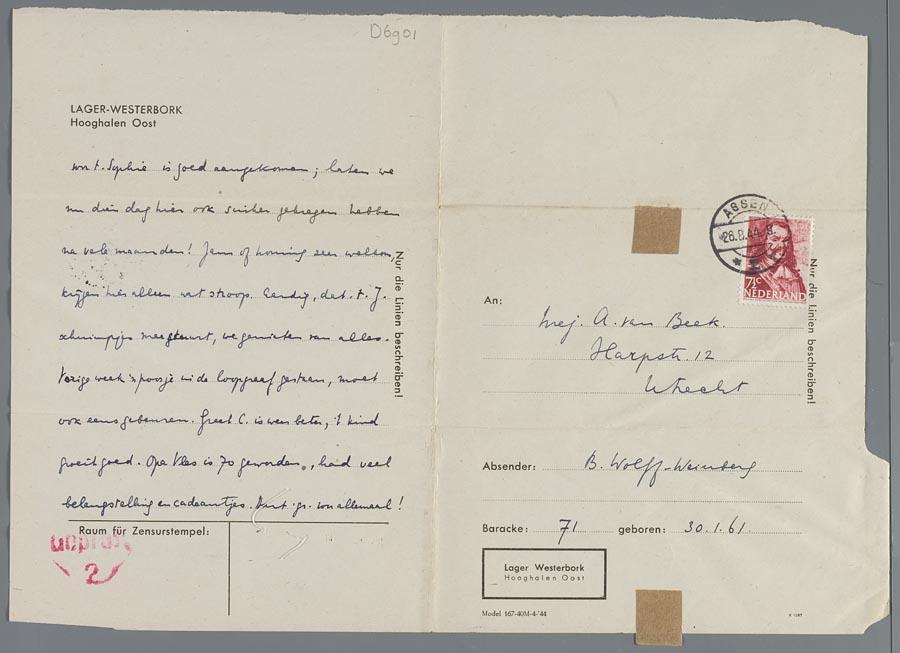 D6901
LAGER-WESTERBORK
Hooghalen Oost
t. Sophie is goed aangekomen; laten we
nu dien dag hier ook suiker gekregen hebben
na vele maanden! Jenn of honing zeer welkom,
krijgen hier alleen wat stroop. Eendig, dat t. J.
schrimpjes meestuurt, we genieten van alles.
Vorige week 'n poosje in de loopgraaf gestaan, moet
ook eens gebeuren. Greet C. is weer beter, 't kind
groeit goed. Opa Vles is 70 geworden, had veel
belangstelling en cadeautjes. Hart. gr. von allemaal!
Nur die Linien beschreiben!
Raum für Zensurstempel:
2
ASSEN
26.8.44
7½c
NEDERLAND
Nur die Linien beschreiben!
An:
Mej. A. van Beek.
Harpstr. 12
Utrecht
Absender: B. Wolff-Weinberg
Baracke: 71 geboren: 30.1.61.
Lager Westerbork
Hooghalen Oost
Model 167-40M-4-'44